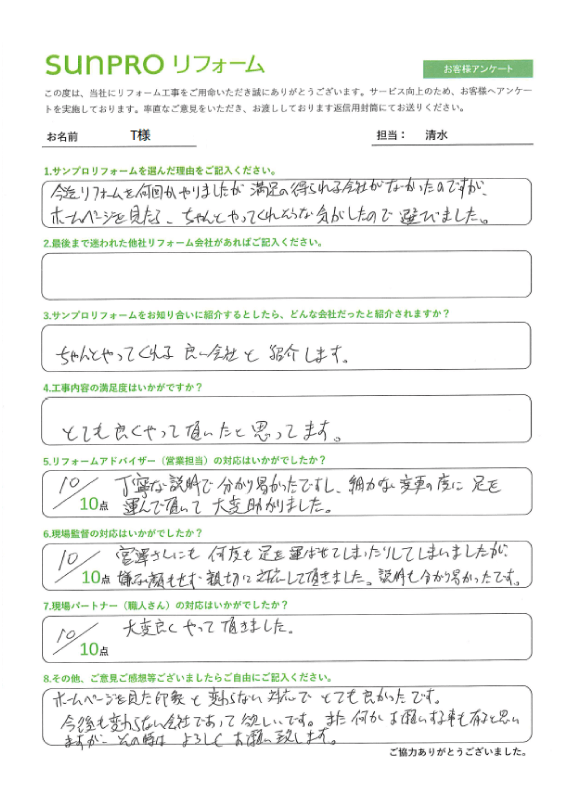 SUNPRO リフォーム
お客様アンケート
この度は、当社にリフォーム工事をご用命いただき誠にありがとうございます。サービス向上のため、お客様へアンケー
トを実施しております。率直なご意見をいただき、お渡ししております返信用封筒にてお送りください。
お名前 T様 担当： 清水
1.サンプロリフォームを選んだ理由をご記入ください。
今迄リフォームを何回かやりましたが 満足の得られる会社がなかったのですが、
ホームページを見たら、ちゃんとやってくれそうな気がしたので 選びました。
2.最後まで迷われた他社リフォーム会社があればご記入ください。
3.サンプロリフォームをお知り合いに紹介するとしたら、どんな会社だったと紹介されますか？
ちゃんとやってくれる 良い会社 と 紹介します。
4.工事内容の満足度はいかがですか？
とても良くやって頂いたと思ってます。
5.リフォームアドバイザー（営業担当）の対応はいかがでしたか？
10／10点 丁寧な説明で分かり易かったですし、細かな変更の度に 足を
運んで頂いて 大変助かりました。
6.現場監督の対応はいかがでしたか？
10／10点 宮澤さんにも 何度も足を運ばせてしまったりしてしまいましたが、
嫌な顔もせず 親切に 対応して頂きました。説明も分かり易かったです。
7.現場パートナー（職人さん）の対応はいかがでしたか？
10／10点 大変良くやって頂きました。
8.その他、ご意見ご感想等ございましたらご自由にご記入ください。
ホームページを見た印象と変わらない対応でとても良かったです。
今後も変わらない会社であって欲しいです。また何かお願いする事も有ると思い
ますが、その時は よろしくお願い致します。
ご協力ありがとうございました。